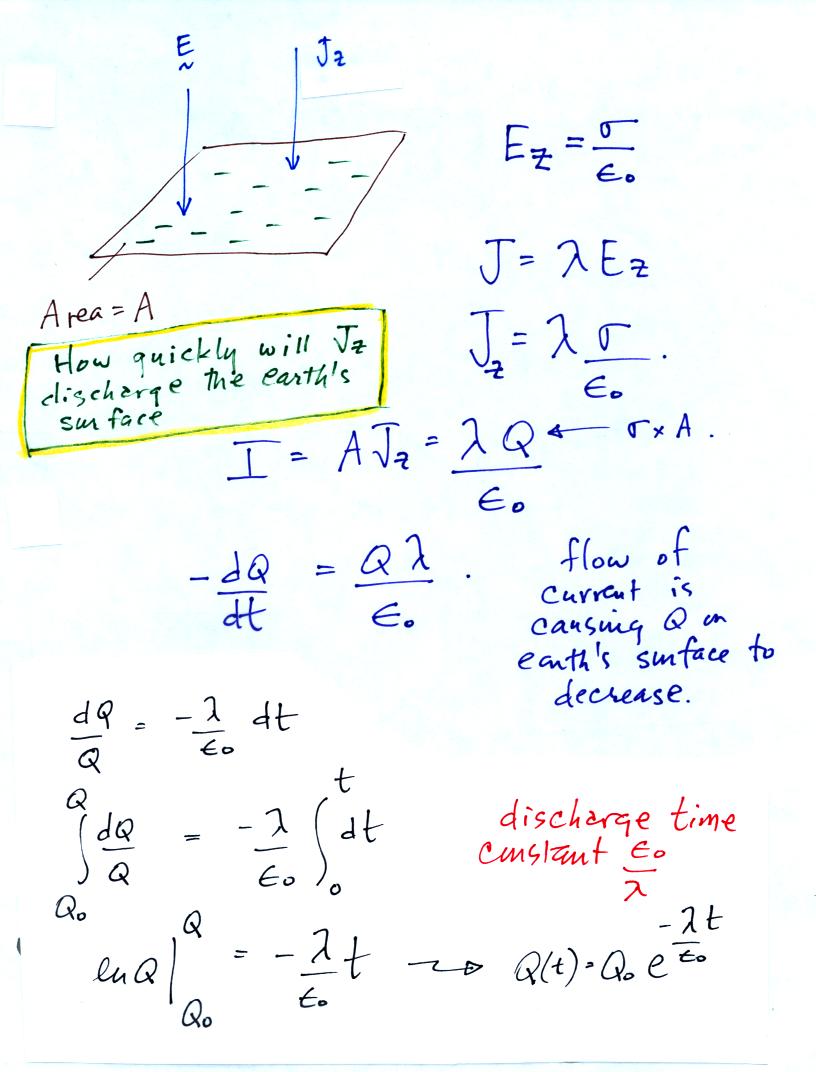 E
~
J_z
E_z = σ/ε₀
J = λ E_z
J_z = λ σ/ε₀ .
Area = A
How quickly will J_z
discharge the earth's
surface
I = A J_z = λ Q/ε₀ ← σ × A .
- dQ/dt = Q λ/ε₀ .
flow of
current is
causing Q on
earth's surface to
decrease.
dQ/Q = - λ/ε₀ dt
∫_{Q₀}^{Q} dQ/Q = - λ/ε₀ ∫_0^t dt
discharge time
constant ε₀/λ
ln Q |_{Q₀}^{Q} = - λ/ε₀ t ⇝ Q(t) = Q₀ e^{-λt/ε₀}